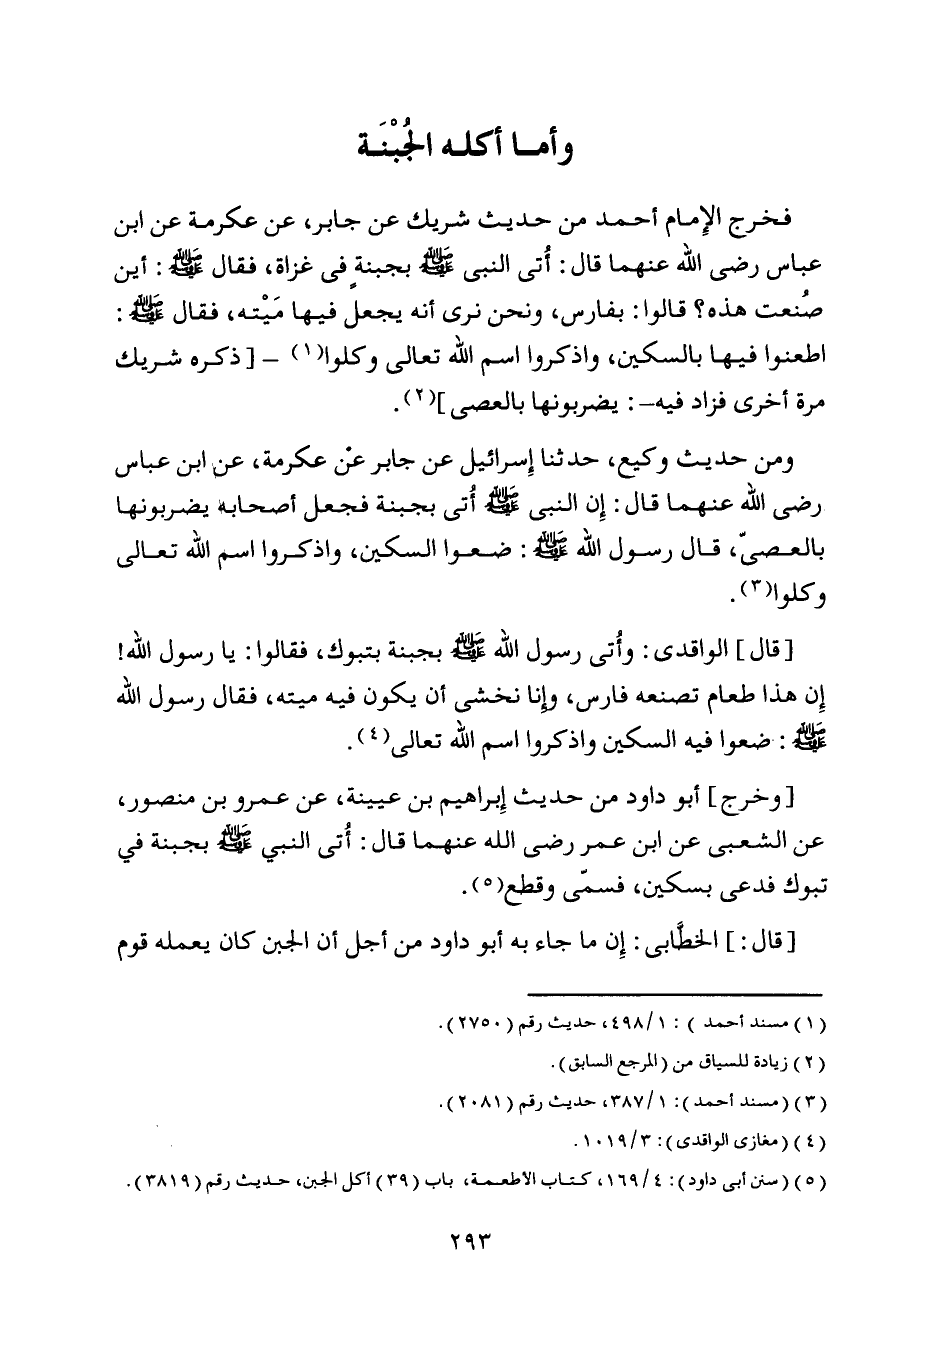 وأما أكله الجُبْنَة
فخرج الإمام أحمد من حديث شريك عن جابر، عن عكرمة عن ابن
عباس رضى الله عنهما قال: أُتى النبى ﷺ بجبنةٍ فى غزاة، فقال ﷺ: أين
صُنعت هذه؟ قالوا: بفارس، ونحن نرى أنه يجعل فيها مَيْته، فقال ﷺ:
اطعنوا فيها بالسكين، واذكروا اسم الله تعالى وكلوا(١) – [ذكره شريك
مرة أخرى فزاد فيه–: يضربونها بالعصى](٢).
ومن حديث وكيع، حدثنا إسرائيل عن جابر عنْ عكرمة، عن ابن عباس
رضى الله عنهما قال: إن النبى ﷺ أُتى بجبنة فجعل أصحابه يضربونها
بالعصىّ، قال رسول الله ﷺ: ضعوا السكين، واذكروا اسم الله تعالى
وكلوا(٣).
[قال] الواقدى: وأُتى رسول الله ﷺ بجبنة بتبوك، فقالوا: يا رسول الله!
إن هذا طعام تصنعه فارس، وإنا نخشى أن يكون فيه ميته، فقال رسول الله
ﷺ: ضعوا فيه السكين واذكروا اسم الله تعالى(٤).
[وخرج] أبو داود من حديث إبراهيم بن عيينة، عن عمرو بن منصور،
عن الشعبى عن ابن عمر رضى الله عنهما قال: أُتى النبي ﷺ بجبنة في
تبوك فدعى بسكين، فسمّى وقطع(٥).
[قال:] الخطَّابى: إن ما جاء به أبو داود من أجل أن الجبن كان يعمله قوم
(١) مسند أحمد ) : ١/ ٤٩٨، حديث رقم (٢٧٥٠).
(٢) زيادة للسياق من (المرجع السابق).
(٣) (مسند أحمد): ١/ ٣٨٧، حديث رقم (٢٠٨١).
(٤) (مغازى الواقدى): ٣/ ١٠١٩.
(٥) (سنن أبى داود): ٤/ ١٦٩، كتاب الأطعمة، باب (٣٩) أكل الجبن، حديث رقم (٣٨١٩).
٢٩٣